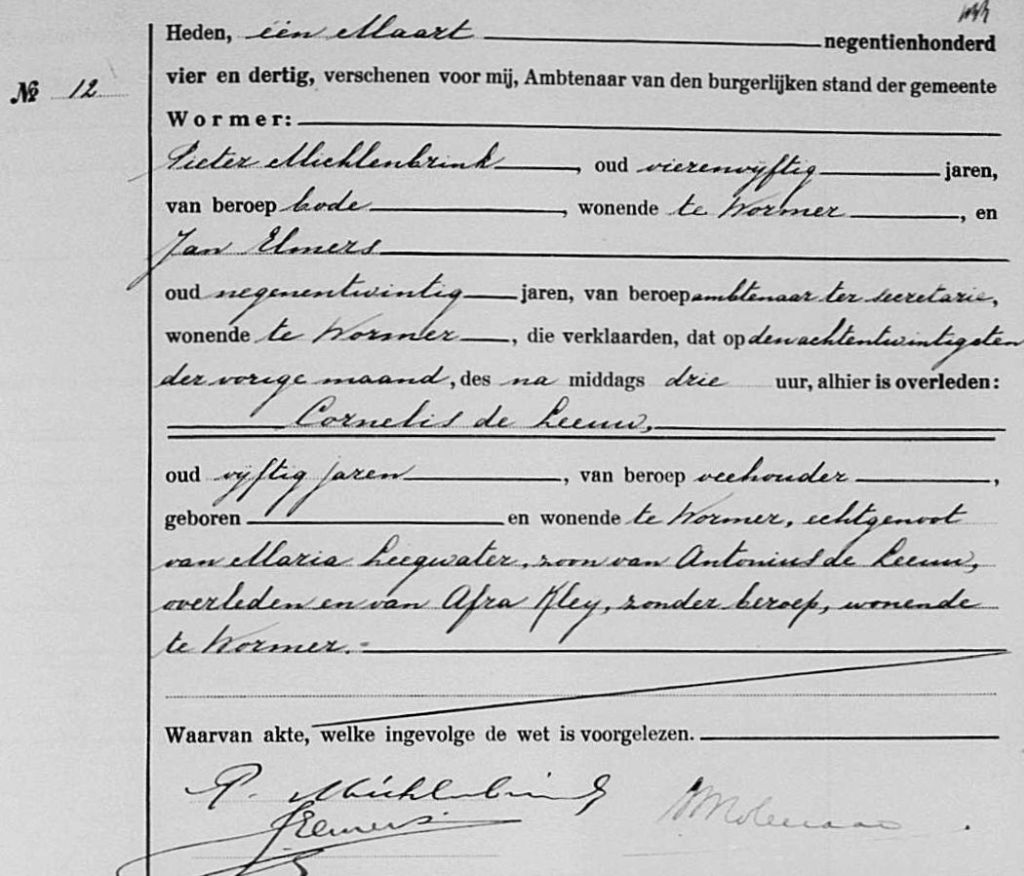 Heden, één Maart negentienhonderd
№ 12
vier en dertig, verschenen voor mij, Ambtenaar van den burgerlijken stand der gemeente
Wormer:
Pieter Michlenbrink, oud vierenvijftig jaren,
van beroep bode, wonende te Wormer, en
Jan Elmers
oud negenentwintig jaren, van beroep ambtenaar ter secretarie,
wonende te Wormer, die verklaarden, dat op den achtentwintigsten
der vorige maand, des na middags drie uur, alhier is overleden:
Cornelis de Leeuw,
oud vijftig jaren, van beroep veehouder,
geboren en wonende te Wormer, echtgenoot
van Maria Leegwater, zoon van Antonius de Leeuw,
overleden en van Afra Kley, zonder beroep, wonende
te Wormer.
Waarvan akte, welke ingevolge de wet is voorgelezen.
P. Michlenbrink
JElmers